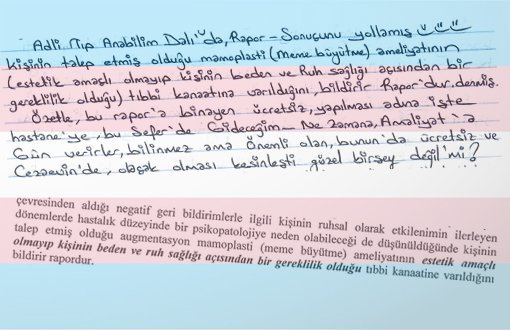 Adli Tıp Anabilim Dalı'da, Rapor - Sonuçunu yollamış
kişinin talep etmiş olduğu mamoplasti (meme büyütme) ameliyatının
(estetik amaçlı olmayıp kişinin beden ve Ruh sağlığı açısından bir
gereklilik olduğu) tıbbi kanaatına varıldığını, bildirir Rapor'dur. denmiş.
Özetle, bu rapor'a binayen ücretsiz, yapılması adına işte
hastane'ye, bu Sefer'de Gideceğim - Ne zamana, Ameliyat'a
Gün verirler, bilinmez ama önemli olan, bunun'da ücretsiz ve
Cezaevin'de, olacak olması kesinleşti güzel birşey değil'mi?
çevresinden aldığı negatif geri bildirimlerle ilgili kişinin ruhsal olarak etkilenimin ilerleyen
dönemlerde hastalık düzeyinde bir psikopatolojiye neden olabileceği de düşünüldüğünde kişinin
talep etmiş olduğu augmentasyon mamoplasti (meme büyütme) ameliyatının estetik amaçlı
olmayıp kişinin beden ve ruh sağlığı açısından bir gereklilik olduğu tıbbi kanaatine varıldığını
bildirir rapordur.